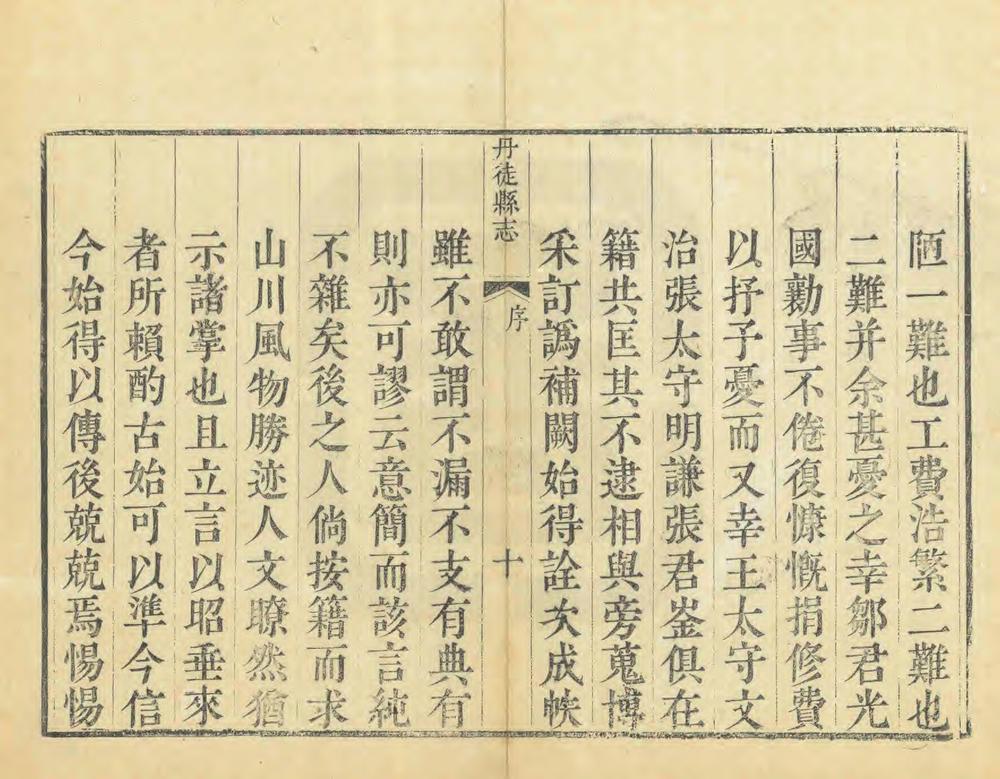 陋一難也工費浩繁二難也
二難并余甚憂之幸鄒君光
國勷事不倦復慷慨捐修費
以抒予憂而又幸王太守文
治張太守明謙張君崟俱在
籍共匡其不逮相與旁蒐博
采訂譌補闕始得詮次成帙
丹徒縣志
序
十
雖不敢謂不漏不支有典有
則亦可謬云意簡而該言純
不雜矣後之人倘按籍而求
山川風物勝迹人文瞭然猶
示諸掌也且立言以昭垂來
者所賴酌古始可以準今信
今始得以傳後兢兢焉惕惕